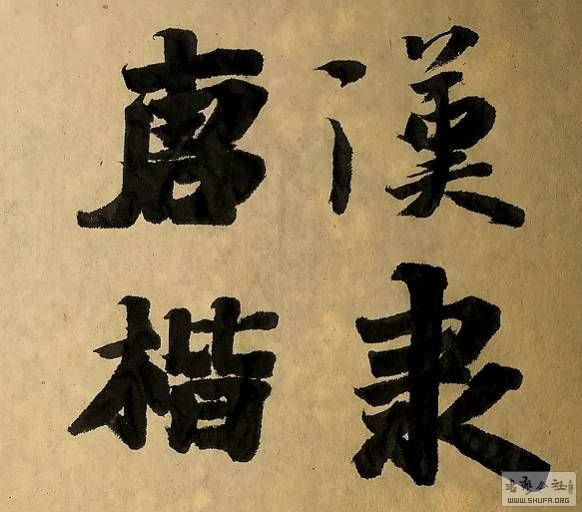 漢隶
唐楷
书法公社
WWW.SHUFA.ORG